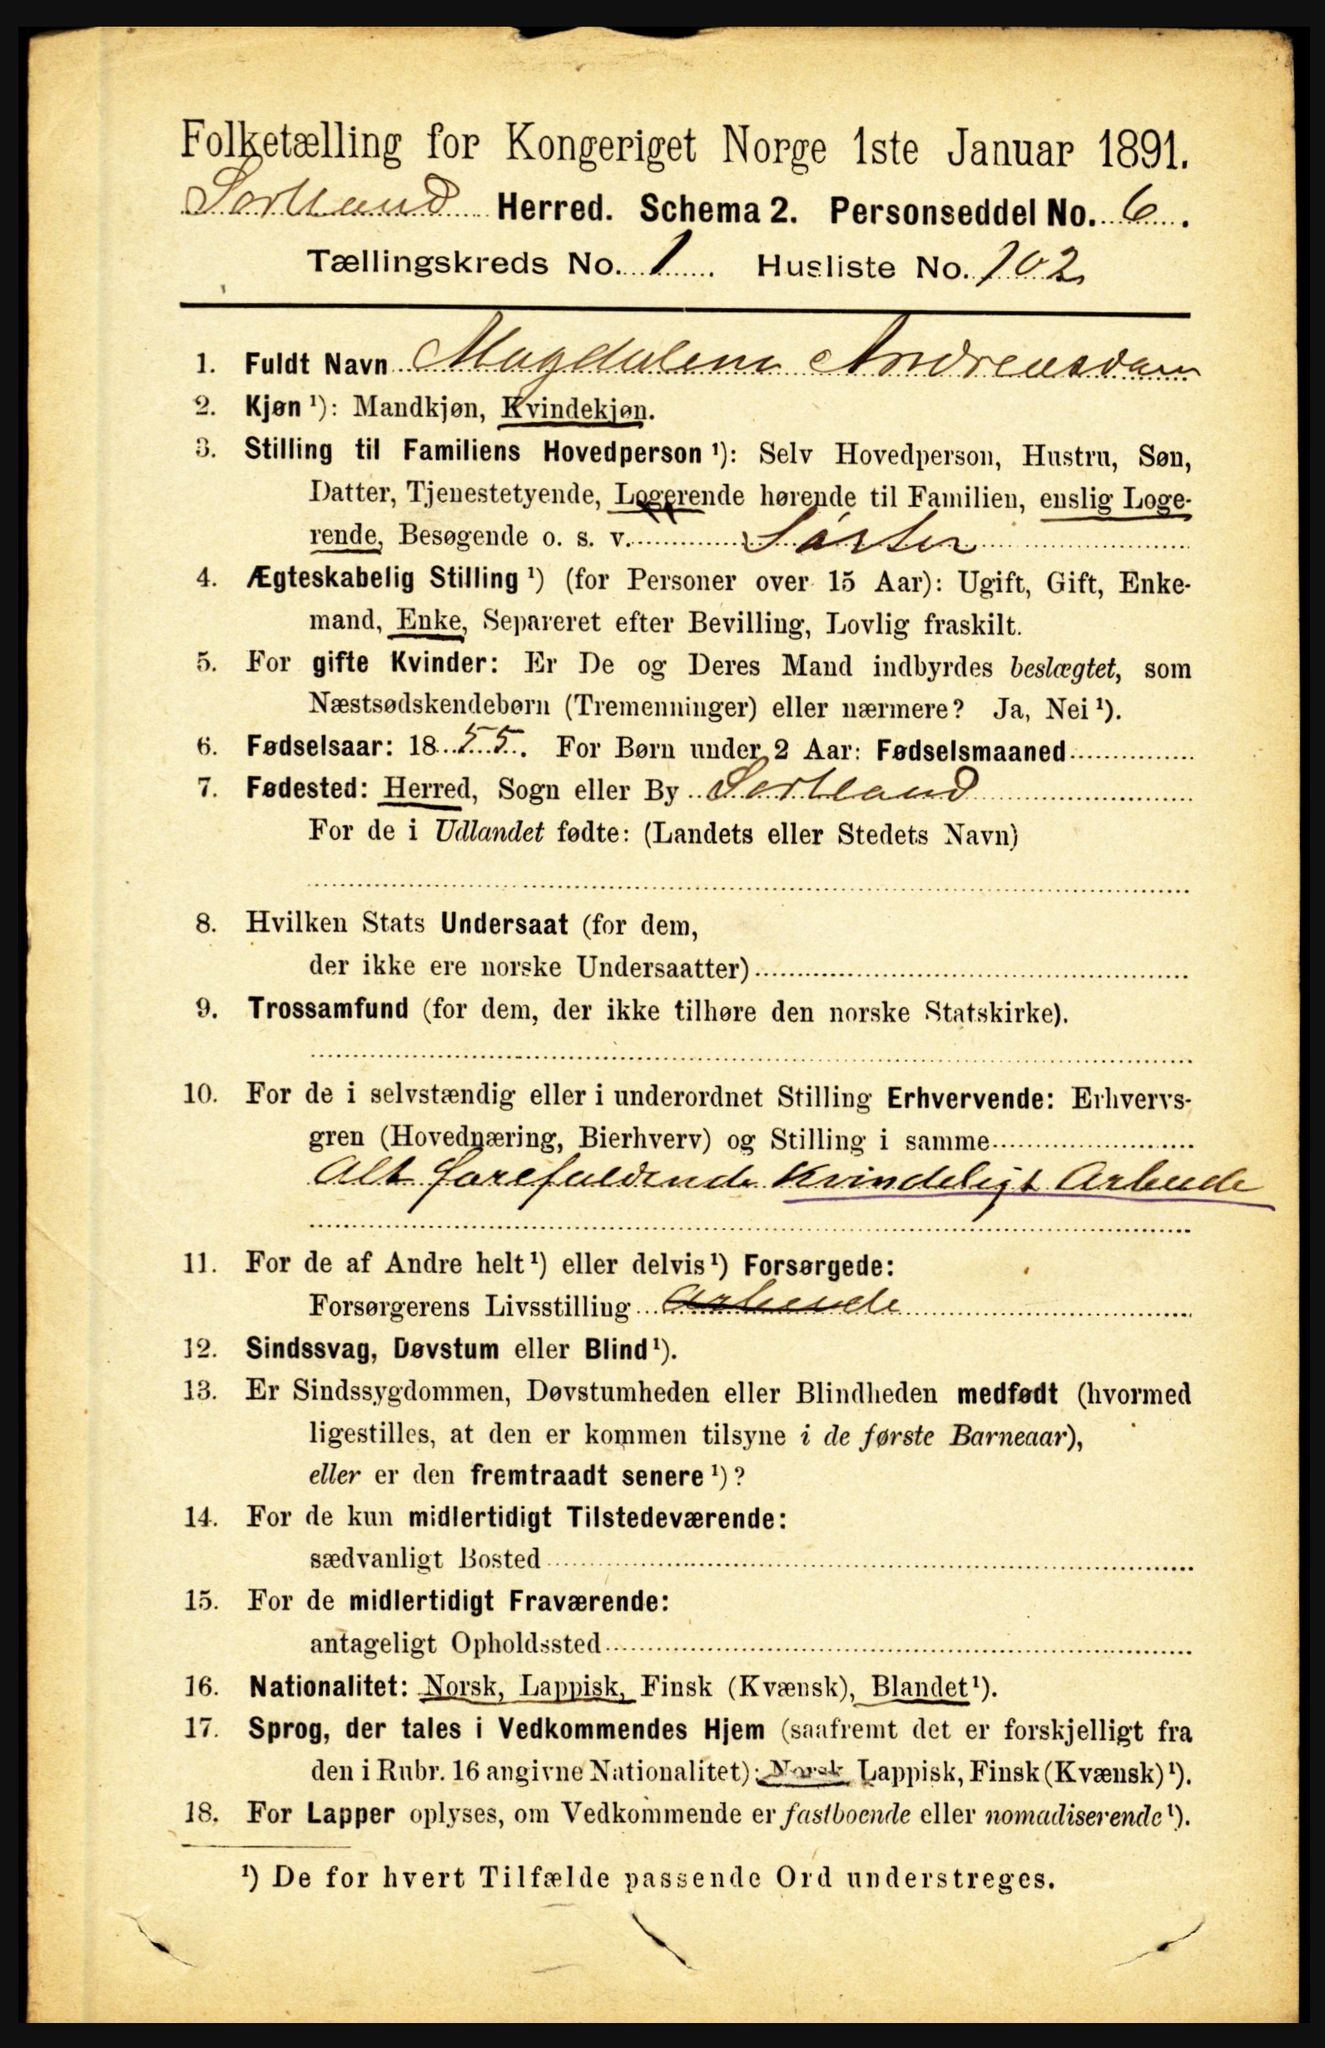 Folketælling for Kongeriget Norge 1ste Januar 1891.
Sortland Herred. Schema 2. Personseddel No. 6.
Tællingskreds No. 1. Husliste No. 102
1. Fuldt Navn Magdalena Andreasdatr
2. Kjøn ¹): Mandkjøn, Kvindekjøn.
3. Stilling til Familiens Hovedperson ¹): Selv Hovedperson, Hustru, Søn,
Datter, Tjenestetyende, Logerende hørende til Familien, enslig Loge-
rende, Besøgende o. s. v. Søster
4. Ægteskabelig Stilling ¹) (for Personer over 15 Aar): Ugift, Gift, Enke-
mand, Enke, Separeret efter Bevilling, Lovlig fraskilt.
5. For gifte Kvinder: Er De og Deres Mand indbyrdes beslægtet, som
Næstsødskendebørn (Tremenninger) eller nærmere? Ja, Nei ¹).
6. Fødselsaar: 1855. For Børn under 2 Aar: Fødselsmaaned
7. Fødested: Herred, Sogn eller By Sortland
For de i Udlandet fødte: (Landets eller Stedets Navn)
8. Hvilken Stats Undersaat (for dem,
der ikke ere norske Undersaatter)
9. Trossamfund (for dem, der ikke tilhøre den norske Statskirke).
10. For de i selvstændig eller i underordnet Stilling Erhvervende: Erhvervs-
gren (Hovednæring, Bierhverv) og Stilling i samme
Alt forefaldende Kvindeligt Arbeide
11. For de af Andre helt ¹) eller delvis ¹) Forsørgede:
Forsørgerens Livsstilling Arbeide
12. Sindssvag, Døvstum eller Blind ¹).
13. Er Sindssygdommen, Døvstumheden eller Blindheden medfødt (hvormed
ligestilles, at den er kommen tilsyne i de første Barneaar),
eller er den fremtraadt senere ¹)?
14. For de kun midlertidigt Tilstedeværende:
sædvanligt Bosted
15. For de midlertidigt Fraværende:
antageligt Opholdssted
16. Nationalitet: Norsk, Lappisk, Finsk (Kvænsk), Blandet ¹).
17. Sprog, der tales i Vedkommendes Hjem (saafremt det er forskjelligt fra
den i Rubr. 16 angivne Nationalitet): Norsk, Lappisk, Finsk (Kvænsk) ¹).
18. For Lapper oplyses, om Vedkommende er fastboende eller nomadiserende ¹).
¹) De for hvert Tilfælde passende Ord understreges.